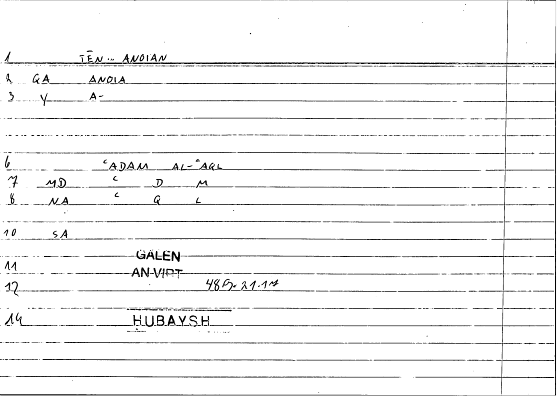 1 TĒN... ANOIAN
2 GA ANOIA
3 V A-
6 ʿADAM AL-ʿAQL
7 MD ʿ D M
8 NA ʿ Q L
10 SA
GALEN
11 AN-VIRT
12 485.21.17
14 HUBAYSH